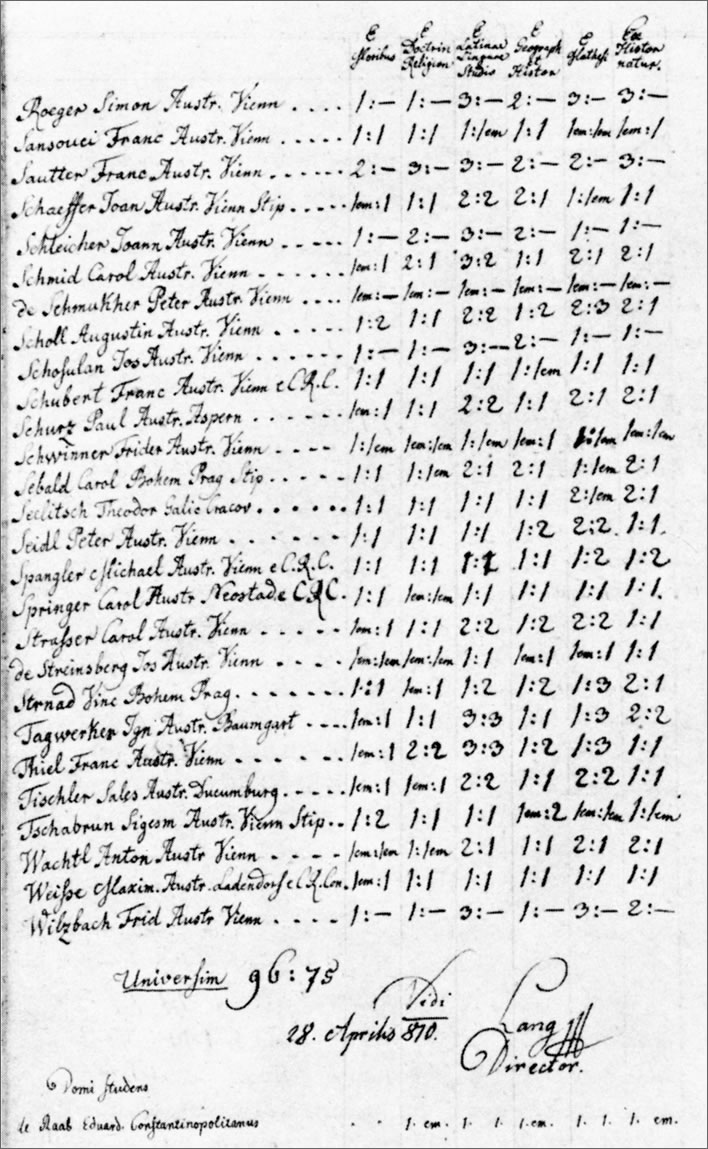 E Moribus E Doctrin Religion E Latinae Linguae Studio E Geograph et Histor E Mathesi Ex Histor natur.
Roeger Simon Austr. Vienn .... 1:— 1:— 3:— 2:— 3:— 3:—
Sansouci Franc Austr. Vienn .... 1:1 1:1 1:/em 1:1 1em:/em 1em:1
Sautter Franc Austr. Vienn ...... 2:— 3:— 3:— 2:— 2:— 3:—
Schaeffer Joan Austr. Vienn Stip ..... 1em:1 1:1 2:2 2:1 1:/em 1:1
Schleicher Joann Austr. Vienn ..... 1:— 2:— 3:— 2:— 1:— 1:—
Schmid Carol Austr. Vienn ...... 1em:1 2:1 3:2 1:1 2:1 2:1
de Schmukher Peter Austr. Vienn .... 1em:— 1em:— 1em:— 1em:— 1em:— 1em:—
Scholl Augustin Austr. Vienn ..... 1:2 1:1 2:2 1:2 2:3 2:1
Schosulan Jos Austr. Vienn ...... 1:— 1:— 3:— 2:— 1:— 1:—
Schubert Franc Austr. Vienn e C.R.C. 1:1 1:1 1:1 1:/em 1:1 1:1
Schurz Paul Austr. Aspern ..... 1em:1 1:1 2:2 1:1 2:1 2:1
Schwinner Frider Austr. Vienn .... 1:/em 1em:/em 1:/em 1em:1 1:/em 1em:/em
Sebald Carol Bohem Prag Stip ..... 1:1 1:/em 2:1 2:1 1:/em 2:1
Seelitsch Theodor Galic Cracov ...... 1:1 1:1 1:1 1:1 2:/em 2:1
Seidl Peter Austr. Vienn ...... 1:1 1:1 1:1 1:2 2:2 1:1
Spangler Michael Austr. Vienn e C.R.C. 1:1 1:1 1:1 1:1 1:2 1:2
Springer Carol Austr Neostad e C.R.C. 1:1 1em:/em 1:1 1:1 1:1 1:1
Strasser Carol Austr. Vienn ..... 1em:1 1:1 2:2 1:2 2:2 1:1
de Streinsberg Jos Austr. Vienn .... 1em:/em 1em:/em 1:1 1em:1 1em:1 1:1
Strnad Vinc Bohem Prag ....... 1:1 1em:1 1:2 1:2 1:3 2:1
Tagwerker Ign Austr. Baumgart .... 1em:1 1:1 3:3 1:1 1:3 2:2
Thiel Franc Austr. Vienn ...... 1em:1 2:2 3:3 1:2 1:3 1:1
Tischler Sales Austr. Ducumburg .... 1em:1 1em:1 2:2 1:1 2:2 1:1
Tschabrun Sigesm Austr. Vienn Stip .. 1:2 1:1 1:1 1em:2 1em:/em 1:/em
Wachtl Anton Austr Vienn ..... 1em:/em 1:/em 2:1 1:1 2:1 2:1
Weisse Maxim. Austr. Ladendorf e C.R. Con. 1em:1 1:1 1:1 1:1 1:1 1:1
Wilzbach Frid Austr Vienn .... 1:— 1:— 3:— 1:— 3:— 2:—
Universim 96:75
Vidi
28. Aprilis 810. Lang
Director.
Domi studens
de Raab Eduard. Constantinopolitanus . . 1. em. 1. 1. 1. em. 1. 1. 1. em.